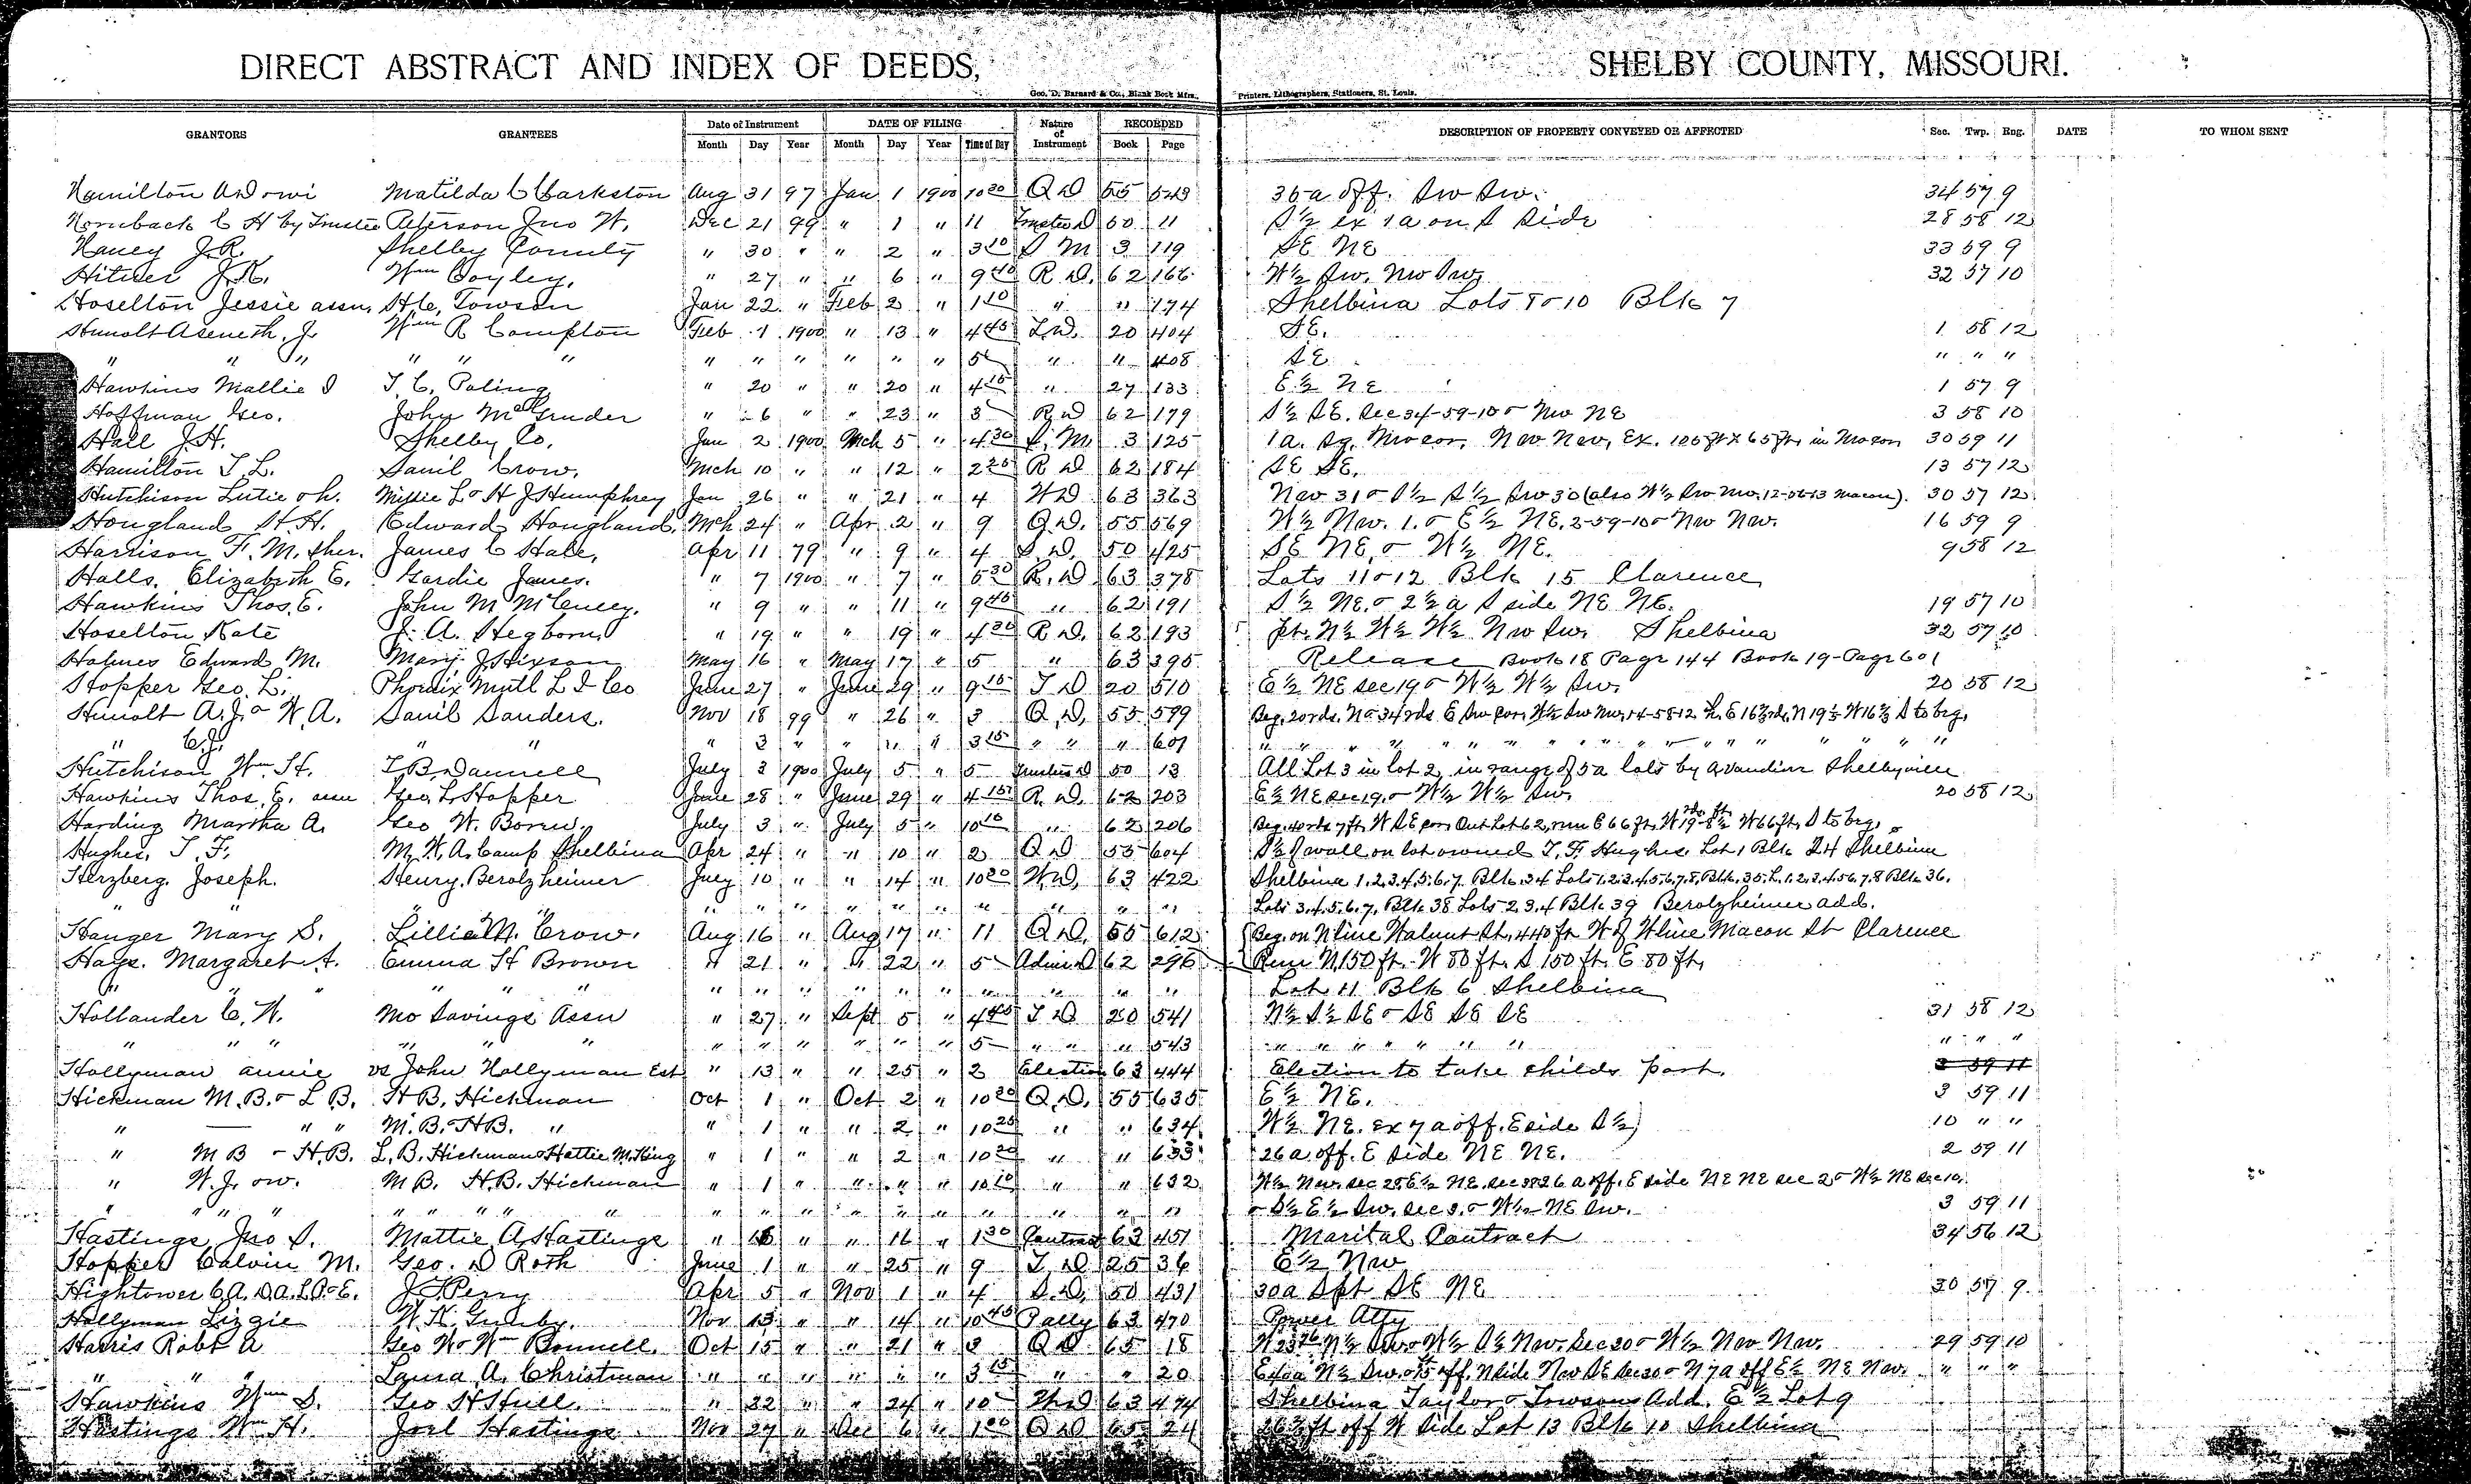 DIRECT ABSTRACT AND INDEX OF DEEDS, SHELBY COUNTY, MISSOURI.
Geo. D. Barnard & Co., Blank Book Mfrs., Printers, Lithographers, Stationers, St. Louis.
GRANTORS GRANTEES Date of Instrument DATE OF FILING Nature of Instrument RECORDED DESCRIPTION OF PROPERTY CONVEYED OR AFFECTED Sec. Twp. Rng. DATE TO WHOM SENT
Month Day Year Month Day Year Time of Day Book Page
Hamilton A D o wi Matilda C Clarkston Aug 31 97 Jan 1 1900 10 20 Q D 55 543 35 a off. Sw Sw. 34 57 9
Hornback C H by Trustee Peterson Jno W. Dec 21 99 " 1 " 11 Trustee D 50 11 S ½ ex 1 a on S side 28 58 12
Haney J.R. Shelby County " 30 " " 2 " 3 10 S M 3 119 SE NE 33 59 9
J.K. Wm Coyley. " 27 " " 6 " 9 40 R D. 62 166 W ½ Sw. Nw Sw. 32 57 10
Hoselton Jessie assn. H C. Towson Jan 22 " Feb 2 " 1 10 " " 174 Shelbina Lots 8 o 10 Blk 7
Hunolt Aseneth. J. Wm R Compton Feb 1 1900 " 13 " 4 45 T. D. 20 404 SE. 1 58 12
" " " " " " " " " " " " 5 " " 408 SE " " "
Hawkins Mallie D T. C. Poling " 20 " " 20 " 4 15 " 27 133 E ½ NE 1 57 9
Hoffman Geo. John McGruder " 6 " " 23 " 3 R D 62 179 S ½ SE. Sec 34-59-10 o Nw NE 3 58 10
Hall J.H. Shelby Co. Jan 2 1900 Mch 5 " 4 30 S. M. 3 125 1 a. Sq. Nw cor. Nw Nw, Ex. ft x 65 ft. in Nw cor. 30 59 11
Hamilton T. L. Danil Crow. Mch 10 " " 12 " 2 25 R D 62 184 SE SE. 13 57 12
Hutchison Lutie o h. Millie L o H J Humphrey Jan 26 " " 21 " 4 W D 63 363 Nw 31 o S ½ S ½ Sw 30 (also W ½ Sw Nw. Macon). 30 57 12
Hougland H. H. Edward Hougland. Mch 24 " Apr. 2 " 9 Q D. 55 569 W ½ Nw. 1. o E ½ NE. 2-59-10 o Nw Nw. 16 59 9
Harrison F. M. sher. James C Hale. Apr 11 79 " 9 " 4 S. D. 50 425 SE NE. o W ½ NE. 9 58 12
Halls. Elizabeth E. Gardie James. " 7 1900 " 7 " 5 30 R. D. 63 378 Lots 11 o 12 Blk 15 Clarence
Hawkins Thos. E. John M McCulley. " 9 " " 11 " 9 45 " 62 191 S ½ NE. o 2 ½ a S side NE NE. 19 57 10
Hoselton Kate J. A. Hegborn. " 19 " " 19 " 4 30 R D. 62 193 pt. N ½ W ½ W ½ Nw Sw. Shelbina 32 57 10
Holmes Edward M. Mary J Hixson May 16 " May 17 " 5 " 63 395 Release Book 18 Page 144 Book 19-Page 601
Hopper Geo. L. Phoenix Mutl L I Co June 27 " June 29 " 9 15 T D 20 510 E ½ NE sec 19 o W ½ W ½ Sw. 20 58 12
Hunolt A. J. o W. A. Danil Sanders. Nov 18 99 " 26 " 3 Q. D. 55 599 Beg. 20 rds. N o 34 rds E Sw cor. W ½ Sw Nw. 14-58-12 th. E 16 ⅔ rds, N 19 ½ W 16 ⅔ S to beg.
" C.J. " " " 3 " " " " 3 15 " " " 601 " " " " " " " " " " " "
Hutchison Wm. H. T. B. Dannell July 3 1900 July 5 " 5 Trustees D 50 13 All Lot 3 in lot 2 in range of 5 a lots by A. Vandiver Shelbyville
Hawkins Thos. E. assn Geo. L. Hopper June 28 " June 29 " 4 15 R. D. 62 203 E ½ NE sec 19. o W ½ W ½ Sw. 20 58 12
Harding Martha A. Geo W. Boren. July 3 " July 5 " 10 10 " 62 206 Beg. 40 rds 7 ft. W SE cor. Out Lot 62, run E 66 ft. W 66 ft. S to beg.
Hughes. T. F. M. W. A. Camp Shelbina Apr 24 " " 10 " 2 Q D 55 604 S ½ of wall on lot owned T. F. Hughes. Lot 1 Blk 24 Shelbina
Herzberg. Joseph. Henry. Berolzheimer July 10 " " 14 " 10 20 W. D. 63 422 Shelbina 1.2.3.4.5.6.7. Blk. 34 Lots 1.2.3.4.5.6.7.8, Blk. 35. L. 1.2.3.4.5.6.7.8 Blk 36.
" " " " " " " " " " " " " " Lots 3.4.5.6.7. Blk 38 Lots 2.3.4 Blk 39 Berolzheimer add.
Hanger Mary S. Lillie M. Crow. Aug 16 " Aug 17 " 11 Q D. 55 612 Beg. on N line Walnut St. 440 ft W of W line Macon St Clarence
Hays. Margaret A. Emma H Brown " 21 " " 22 " 5 Admr D 62 296 Run N. 150 ft. W 80 ft. S 150 ft. E 80 ft.
" " " " " " " " " " " " " " " " Lot 11 Blk 6 Shelbina
Hollander C. W. Mo Savings Assn " 27 " Sept 5 " 4 45 T D 20 541 N ½ S ½ SE o SE SE SE 31 58 12
" " " " " " " " " " " " 5 " " " 543 " " " " " " " " " " "
Hollyman Annie vs John Hollyman Est " 13 " " 25 " 2 Election 63 444 Election to take childs part. 3 59 11
Hickman M. B. o L B. H B. Hickman Oct 1 " Oct 2 " 10 30 Q. D. 55 635 E ½ NE. 3 59 11
" " " M. B. o H B. " " 1 " " 2 " 10 25 " " 634 W ½ NE. ex 7 a off. E side S ½ 10 " "
" M B o H. B. L. B. Hickman o Hattie M. King " 1 " " 2 " 10 20 " " 633 26 a off. E side NE NE. 2 59 11
" W. J. o w. M B. H. B. Hickman " 1 " " " " 10 10 " " 632 W ½ Nw. sec 2 o E ½ NE. sec 3 o 26 a off. E side NE NE sec 2 o W ½ NE sec 10.
" " " " " " " " " " " " " " " " " " o S ½ E ½ Sw. sec 3. o W ½ NE Sw. 3 59 11
Hastings Jno S. Mattie A Hastings " 15 " " 16 " 1 30 Contract 63 451 Marital Contract 34 56 12
Hopper Calvin M. Geo. D Roth June 1 " " 25 " 9 T D 25 36 E ½ Nw
Hightower C. A. D. A. L. P. o E. J. T. Perry Apr 5 " Nov 1 " 4 S. D. 50 431 30 a Spt SE NE 30 57 9
Hollyman Lizzie W. K. Nov 13 " " 14 " 10 45 P atty 63 470 Power Atty
Harris Robt A Geo W o Wm Bonnell. Oct 15 " " 21 " 3 Q D 65 18 N ½ Sw. o W ½ S ½ Nw. Sec 20 o W ½ Nw Nw. 29 59 10
" " " Laura A. Christman " " " " " " 3 15 " " 20 E 40 a N ½ Sw. off. N side Nw SE Sec 20 o N 7 a off E ½ NE Nw. " " "
Hawkins Wm S. Geo H Hull. " 22 " " 24 " 10 W D 63 474 Shelbina Taylor o Towsons Add. E ½ Lot 9
Hastings Wm H. Joel Hastings Nov 27 " Dec 6 " 1 00 Q D 65 24 26 ⅔ ft off W side Lot 13 Blk 10 Shelbina